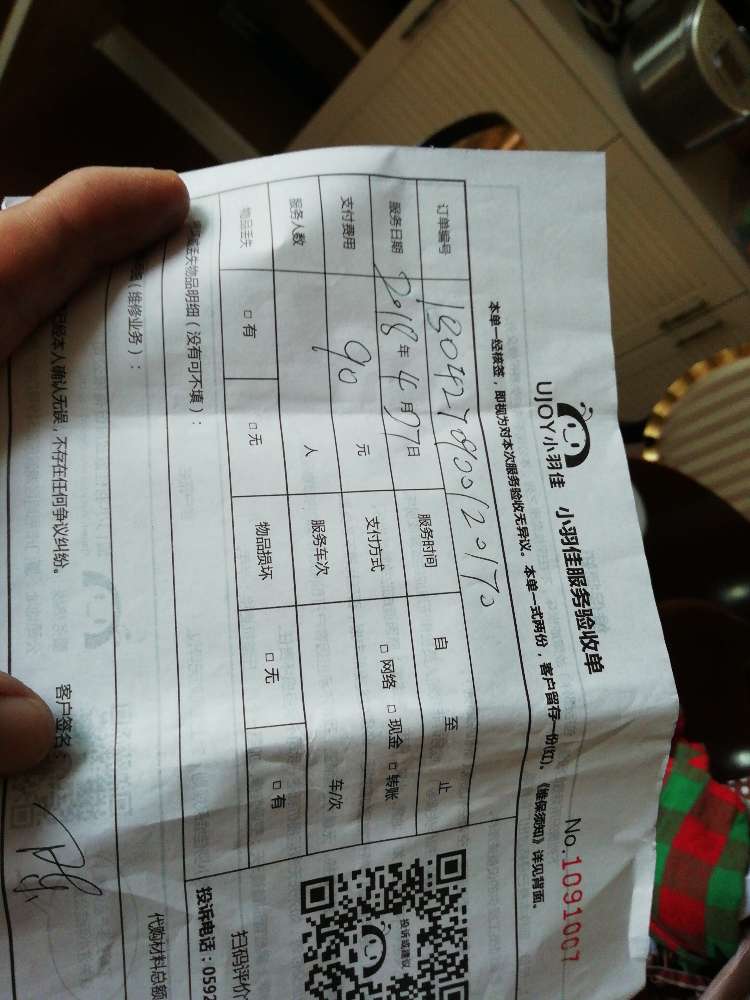 UJOY小羽佳 小羽佳服务验收单
No.1091007
本单一经核签，即视为对本次服务验收无异议。本单一式两份，客户留存一份(红)。《维保须知》详见背面。
订单编号
服务日期 2018年4月27日 服务时间 自 至 止
支付费用 90 元 支付方式 □ 网络 □ 现金 □ 转账
服务人数 人 服务车次 车/次
物品丢失 □ 有 □ 无 物品损坏 □ 无 □ 有
丢失物品明细（没有可不填）：
（维修业务）：
本人确认无误，不存在任何争议纠纷。 客户签名：
投诉或建议
扫码评价
投诉电话：0592
代购材料总额